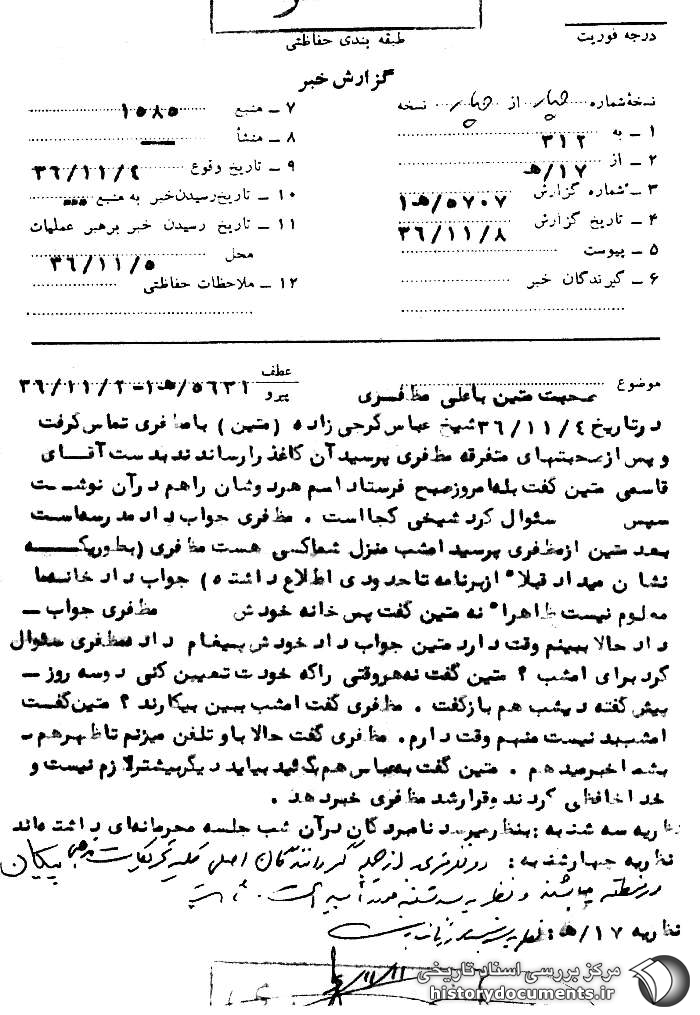 طبقه بندی حفاظتی
درجه فوریت
گزارش خبر
نسخهٔ شماره چهار از چهار نسخه
۱ ـ به ۳۱۲
۲ ـ از ۱۷/هـ
۳ ـ شماره گزارش ۵۷۰۷/هـ۱
۴ ـ تاریخ گزارش ۳۶/۱۱/۸
۵ ـ پیوست
۶ ـ گیرندگان خبر
۷ ـ منبع ۱۵۸۵
۸ ـ منشأ
۹ ـ تاریخ وقوع ۳۶/۱۱/۴
۱۰ ـ تاریخ رسیدن خبر به منبع
۱۱ ـ تاریخ رسیدن خبر برهبر عملیات
محل ۳۶/۱۱/۵
۱۲ ـ ملاحظات حفاظتی
موضوع صحبت متین باعلی مظفری
عطف
پیرو ۵۶۳۱/هـ۱-۳۶/۱۱/۲
درتاریخ ۳۶/۱۱/۴ شیخ عباس کرجی زاده (متین) بامظفری تماس گرفت
و پس از صحبتهای متفرقه مظفری پرسید آن کاغذ را رساندند بدست آقـای
قاسمی متین گفت بله امروز صبح فرستاد اسم هردوشان را هم در آن نوشـت
سپس سئوال کرد شیخی کجا است . مظفری جواب داد مدرسه است
بعد متین از مظفری پرسید امشب منزل شما کسی هست مظفری (بطوریکـه
نشان میداد قبلاً از برنامه تا حدودی اطلاع داشته) جواب داد خانه ما
معلوم نیست ظاهراً نه متین گفت پس خانه خودش مظفری جواب ـ
داد حالا ببینم وقت دارد متین جواب داد خودش پیغام داد مظفری سئوال
کرد برای امشب ؟ متین گفت نه هروقتی را که خودت تعیین کنی دوسه روز ـ
پیش گفته دیشب هم باز گفت . مظفری گفت امشب ببین بیکارند ؟ متین گفـت
امشب بد نیست منهم وقت دارم. مظفری گفت حالا با و تلفن میزنم تا ظهر هم ـ
بشما خبر میدهم . متین گفت بعباس هم بگوئید بیاید دیگر بیشتر لازم نیست و
خداحافظی کردند و قرار شد مظفری خبر دهد .
نظریه سه شنبه : بنظر میرسد نامبردگان در آن شب جلسه محرمانه ای داشته اند
نظریه چهارشنبه : دو نفر از جمله گردانندگان اصلی
در منطقه میباشند و نظریه سه شنبه مورد تأیید است .
نظریه ۱۷/هـ: نظریه
مرکز بررسی اسناد تاریخی
historydocuments.ir